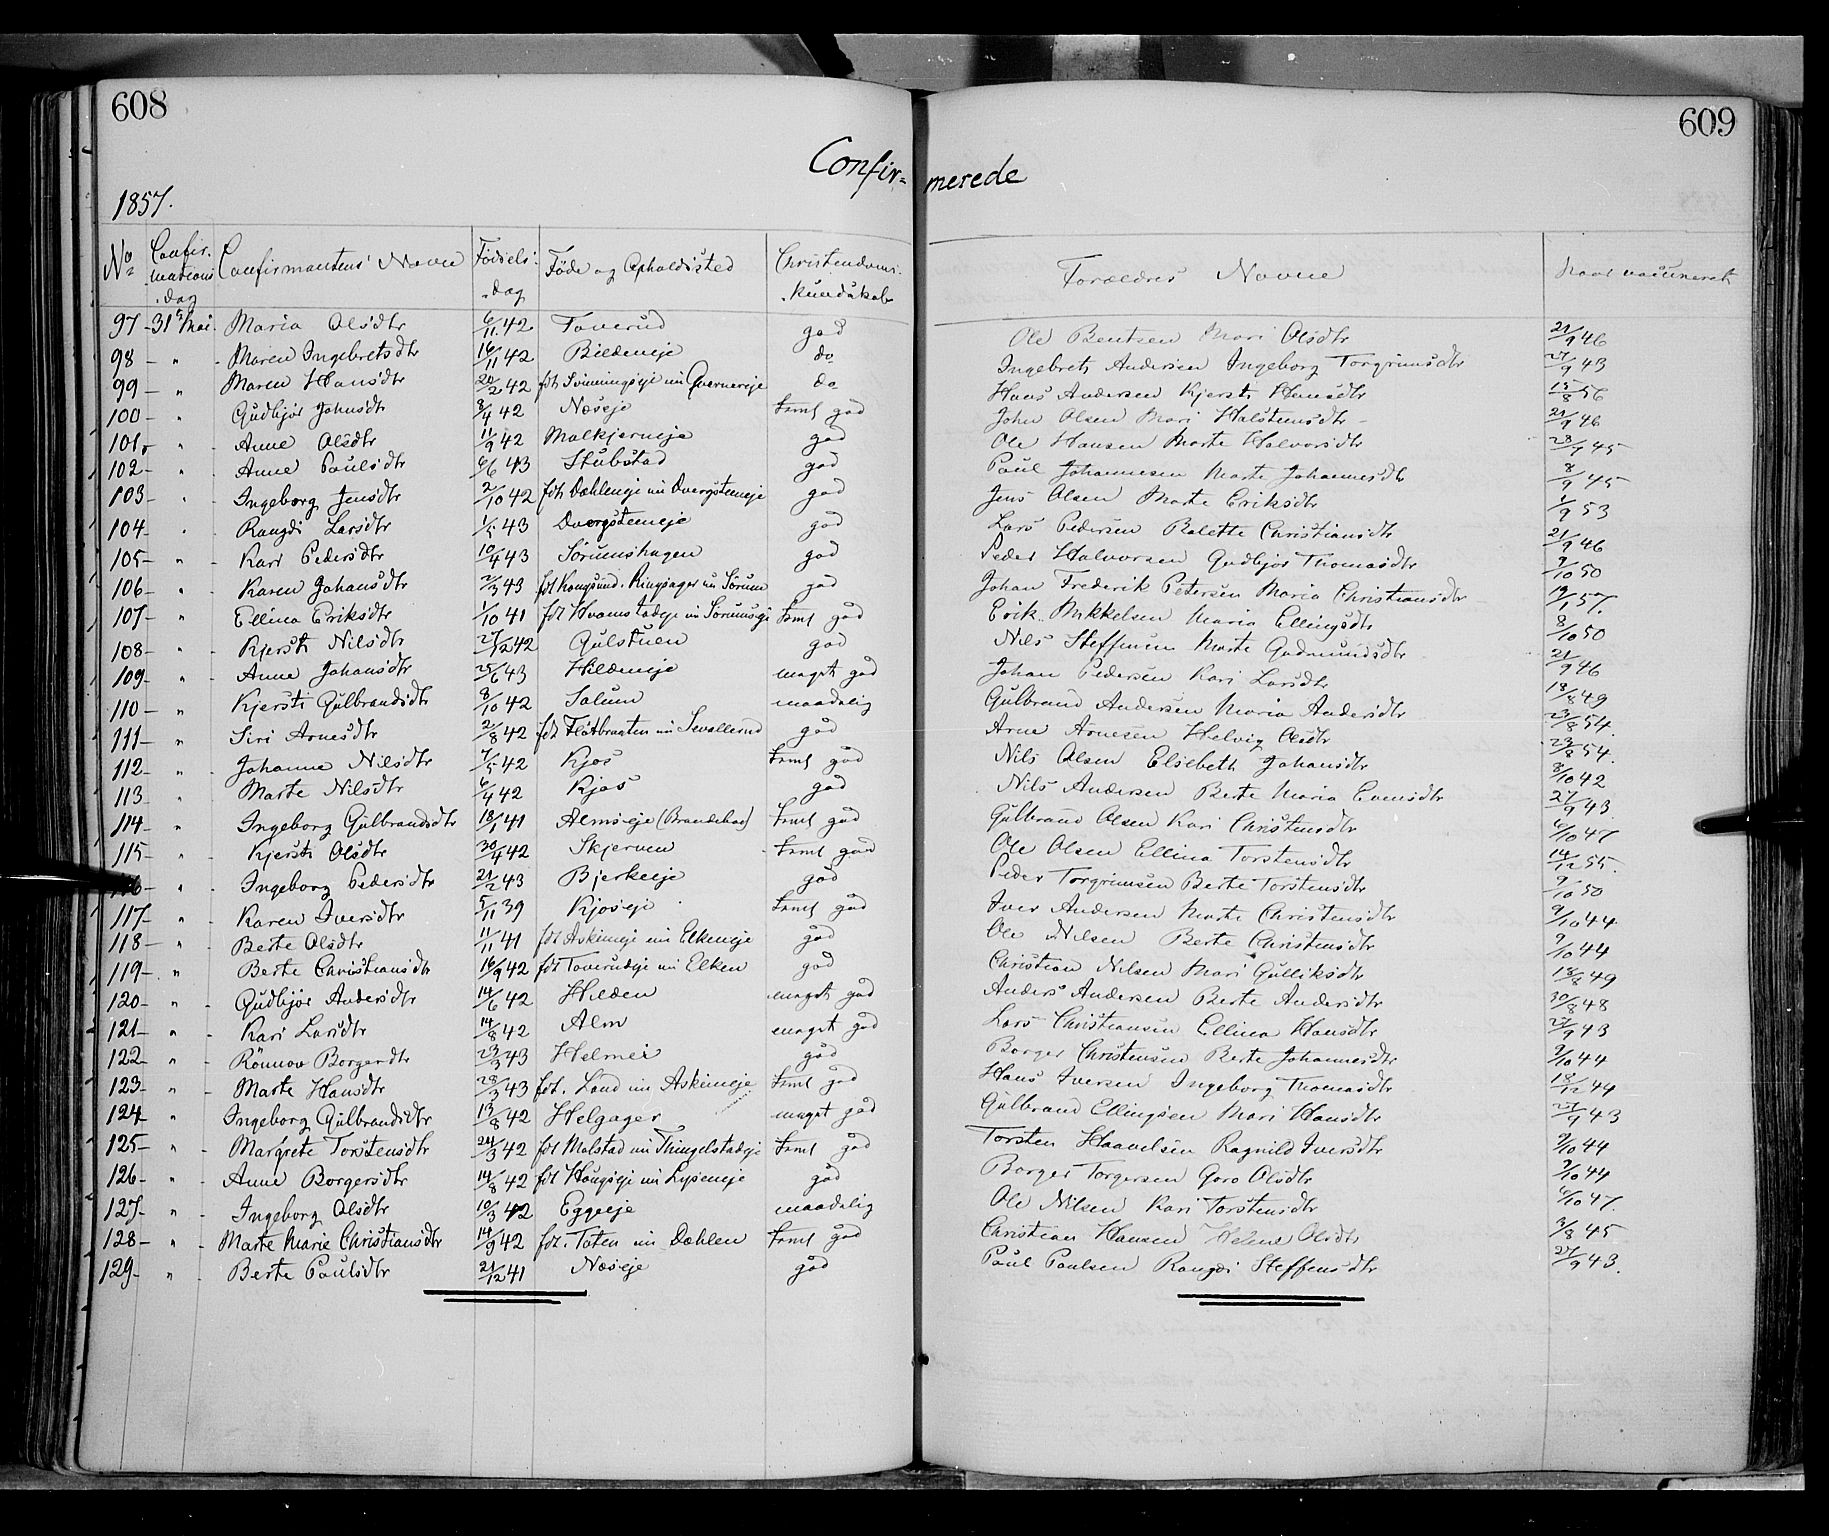 608
609
Confir- merede
1857.
No Confirmations dag Confirmantens Navne Fødsels dag Føde og Opholdssted Christendoms Kundskab Forældres Navne Naar vaccineret
97 - 31te Mai Maria Olsdtr 6/11 42 Toverud god Ole Bentsen Mari Olsdtr 21/9 46
98 - " - Maren Ingebretsdtr 16/11 42 Bildeneje do Ingebret Andersen Ingeborg Torgrimsdtr 27/9 43
99 - " - Maren Hansdtr 20/2 42 fdt Svinningseje nu Qverneneje do Hans Andersen Kjersti Hansdtr 15/8 56
100 - " - Gudbjör Johnsdtr 8/4 42 Næseje temt god John Olsen Mari Halstensdtr - 21/9 46
101 - " - Anne Olsdtr 11/9 42 Molkjerneje god Ole Hansen Marte Halvorsdtr 28/9 45
102 - " - Anne Paulsdtr 6/6 43 Stubstad god Paul Johannesen Marte Johannesdtr 8/9 45
103 - " - Ingeborg Jensdtr 2/10 42 fdt Dæhleneje nu Dvergsteneje god Jens Olsen Marte Eriksdtr 1/9 53
104 - " - Rangdi Larsdtr 1/5 43 Dvergsteneje god Lars Pedersen Ralette Christiansdtr 21/9 46
105 - " - Kari Pedersdtr 10/4 43 Sörumshagen god Peder Halvorsen Gudbjör Thomasdtr 9/10 50
106 - " - Karen Johansdtr 2/3 43 fdt Kongsund, Ringsager nu Sörum god Johan Frederik Petersen Maria Christiansdtr 19/1 57.
107 - " - Ellina Eriksdtr 1/10 41 fdt Hvamstadeje nu Sörumseje temt god Erik Mikkelsen Maria Ellingsdtr 8/10 50
108 - " - Kjersti Nilsdtr 27/12 42 Gulstuen god Nils Steffensen Marte Gudmundsdtr 21/9 46
109 - " - Anne Johansdtr 25/6 43 Hildeneje meget god Johan Pedersen Kari Larsdtr 18/8 49
110 - " - Kjersti Gulbrandsdtr 8/10 42 Solum maadelig Gulbrand Andersen Maria Andersdtr 23/8 54.
111 - " - Siri Arnesdtr 2/8 42 fdt Flötbraaten nu Sevallerud god Arne Arnesen Helvig Olsdtr 23/8 54.
112 - " - Johanne Nilsdtr 7/5 42 Kjos temt god Nils Olsen Elsebeth Johansdtr 8/10 42
113 - " - Marte Nilsdtr 6/4 42 Kjos god Nils Andersen Berte Maria Evensdtr 27/9 43.
114 - " - Ingeborg Gulbrandsdtr 18/1 41 Almseje (Brandebot) temt god Gulbrand Olsen Kari Christensdtr 6/10 47
115 - " - Kjersti Olsdtr 30/4 42 Skjerven temt god Ole Olsen Ellina Torstensdtr 14/12 55.
116 - " - Ingeborg Pedersdtr 21/2 43 Bjerkeeje god Peder Torgrimsen Berte Torstensdtr 9/10 50
117 - " - Karen Iversdtr 5/11 39 Kjoseje temt god Iver Andersen Marte Christensdtr 9/10 44
118 - " - Berte Olsdtr 11/11 41 fdt Askimeje nu Elkeneje god Ole Nilsen Berte Christensdtr 9/10 44
119 - " - Berte Christiansdtr 16/9 42 fdt Toverudeje nu Elken god Christian Nilsen Mari Gulliksdtr 18/8 49
120 - " - Gudbjör Andersdtr 14/6 42 Hilden meget god Anders Andersen Berte Andersdtr 30/8 48
121 - " - Kari Larsdtr 14/8 42 Alm meget god Lars Christiansen Ellina Hansdtr 27/9 43
122 - " - Rönnov Borgersdtr 23/3 43 Helmei god Borger Christensen Berte Johannesdtr 9/10 44
123 - " - Marte Hansdtr 28/3 43 fdt. Land nu Askimeje temt god Hans Iversen Ingeborg Thomasdtr 18/12 44
124 - " - Ingeborg Gulbrandsdtr 13/8 42 Helgager meget god Gulbrand Ellingsen Mari Hansdtr 27/9 43
125 - " - Margrete Torstensdtr 24/3 42 fdt Molstad nu Thingelstadeje temt god Torsten Haavelsen Ragnild Iversdtr 9/10 44
126 - " - Anne Borgersdtr 14/8 42 fdt Haugseje nu Lyseneje god Borger Torgersen Goro Olsdtr 9/10 44
127 - " - Ingeborg Olsdtr 10/3 42 Eggeeje maadelig Ole Nilsen Kari Torstensdtr 6/10 47.
128 - " - Marte Marie Christiansdtr 14/9 42 fdt. Toten nu Dæhlen temt god Christian Hansen Helene Olsdtr 3/8 45
129 - " - Berte Paulsdtr 21/12 41 Næseje god Paul Paulsen Rangdi Steffensdtr 27/9 43.